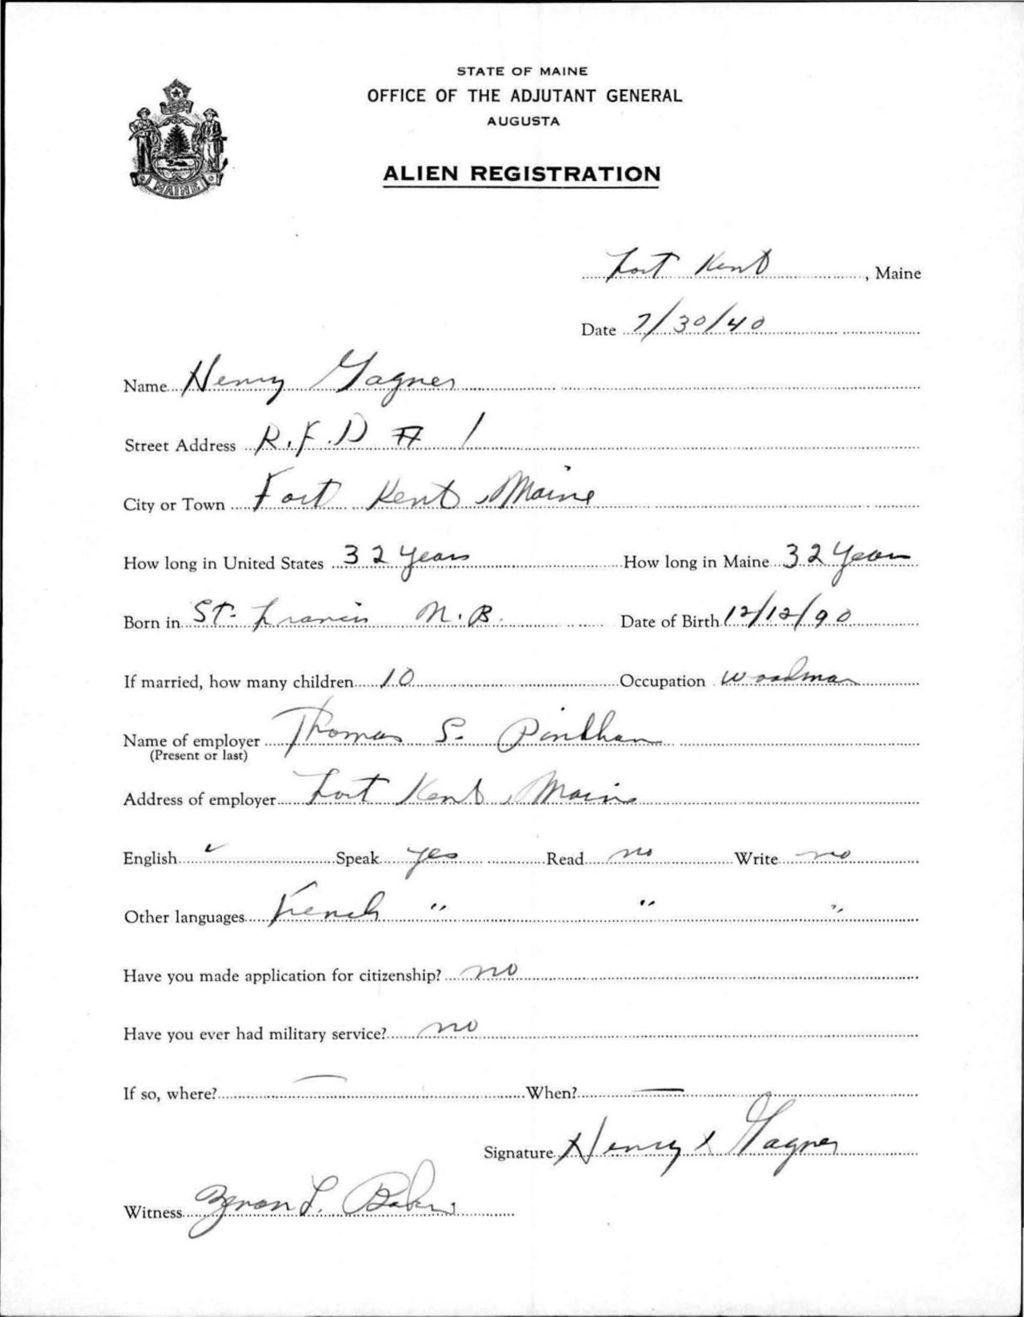 STATE OF MAINE
OFFICE OF THE ADJUTANT GENERAL
AUGUSTA
ALIEN REGISTRATION
MAINE
Fort Kent, Maine
Date 7/30/40
Name Henry Gagner
Street Address R.F.D # 1
City or Town Fort Kent, Maine
How long in United States 32 years How long in Maine 32 years
Born in St. Francis N.B. Date of Birth 12/12/90
If married, how many children 10 Occupation woodman
Name of employer Thomas S. Pinkham
(Present or last)
Address of employer Fort Kent, Maine
English ✓ Speak yes Read no Write no
Other languages French " " "
Have you made application for citizenship? no
Have you ever had military service? no
If so, where? — When? —
Signature Henry x Gagner
Witness Byron L. Baker